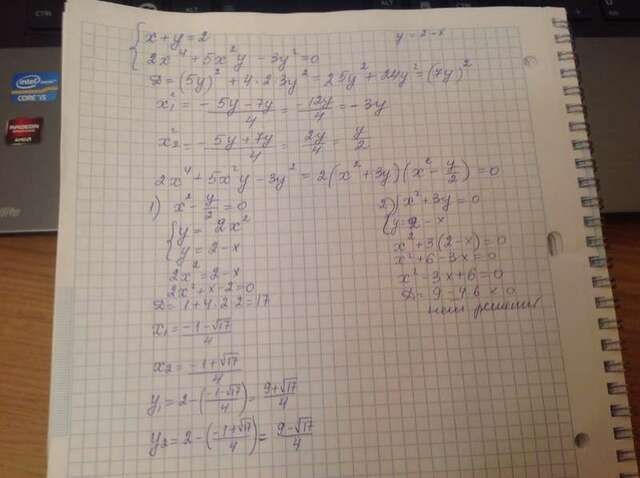 x + y = 2
y = 2 - x
2x⁴ + 5x²y - 3y² = 0
D = (5y)² + 4·2·3y² = 25y² + 24y² = (7y)²
x₁² = -5y - 7y / 4 = -12y / 4 = -3y
x₂² = -5y + 7y / 4 = 2y / 4 = y / 2
2x⁴ + 5x²y - 3y² = 2(x² + 3y)(x² - y/2) = 0
1) x² - y/2 = 0
y = 2x²
y = 2 - x
2x² = 2 - x
2x² + x - 2 = 0
D = 1 + 4·2·2 = 17
x₁ = -1 - √17 / 4
x₂ = -1 + √17 / 4
y₁ = 2 - (-1 - √17 / 4) = 9 + √17 / 4
y₂ = 2 - (-1 + √17 / 4) = 9 - √17 / 4
2) x² + 3y = 0
y = 2 - x
x² + 3(2 - x) = 0
x² + 6 - 3x = 0
x² - 3x + 6 = 0
D = 9 - 4·6 < 0
нет решений
intel
CORE i5
RADEON
GRAPHICS
AMD